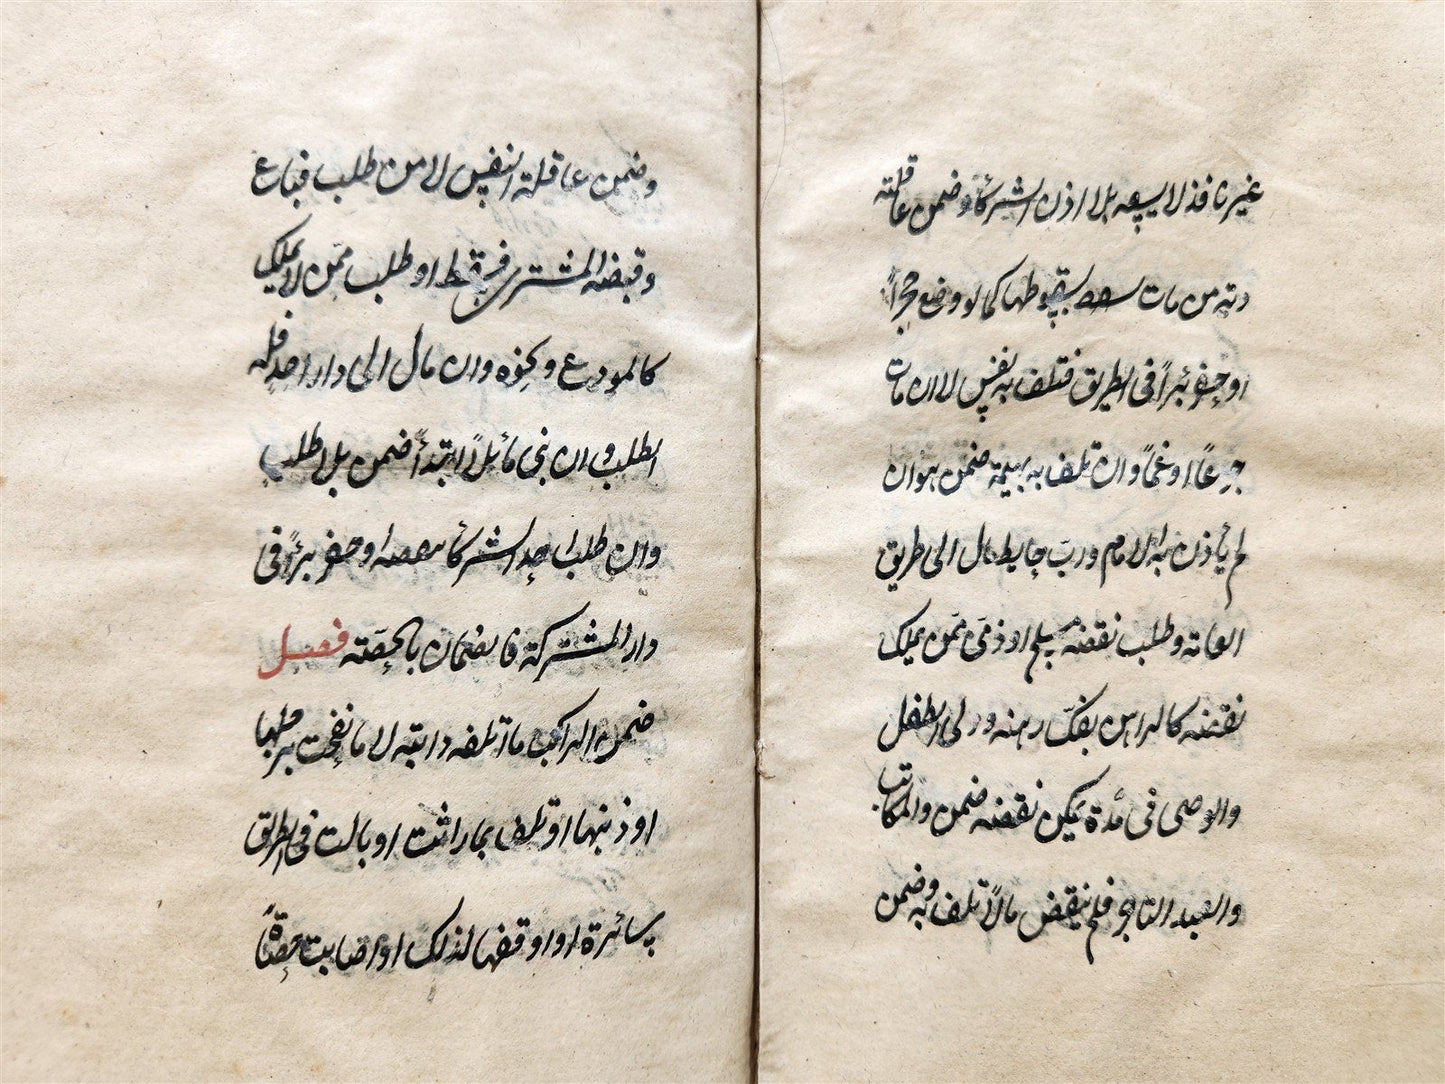 غير نافذ لا يسعه بلا اذن الشركاء وضمن عاقلته
ديّة من مات بسقوطها كما لو وضع حجراً
او حفر بئراً فى الطريق فتلف به نفس لا ان مات
جوعاً او غماً وان تلف به بهيمة ضمن هو ان
لم يأذن به الامام وربّ حايط مال الى طريق
العامّة وطلب نقضه مسلم او ذمّى ممّن يملك
نقضه كالراهن بفكّ رهنه وولى الطفل
والوصى فى مدّة يمكن نقضه ضمن والمكاتب
والعبد التاجر فلم ينقض مالاً تلف به وضمن
وضمن عاقلته النفس لا من طلب فباع
وقبضه المشترى فسقط او طلب ممّن لا يملك
كالمودع ونحوه وان مال الى دار احد فله
الطلب وان بنى مائلاً ابتدأً ضمن بلا طلب
وان طلب احد الشركاء او حفر بئراً فى
دار المشتركة فالضمان بالحصّة فصل
ضمن الراكب ما اتلفه دابته لا ما نفحت برجلها
او ذنبها او تلف بما راثت او بالت فى الطريق
سائرة او اوقفها لذلك او اصابت حصاةً